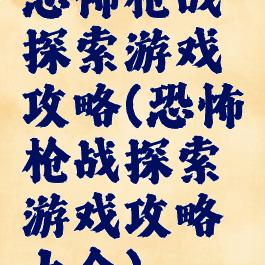 恐怖枪战
探索游戏
攻略(恐怖
枪战探索
游戏攻略
大全)